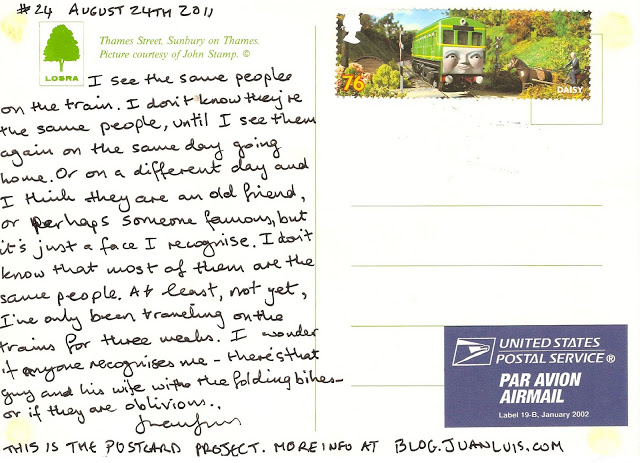 #24 AUGUST 24TH 2011
LOSRA
Thames Street, Sunbury on Thames.
Picture courtesy of John Stamp. ©
I see the same people
on the train. I don't know they're
the same people, until I see them
again on the same day going
home. Or on a different day and
I think they are an old friend,
or perhaps someone famous, but
it's just a face I recognise. I don't
know that most of them are the
same people. At least, not yet,
I've only been traveling on the
trains for three weeks. I wonder
if anyone recognises me - there's that
guy and his wife with the folding bikes -
or if they are oblivious..
THIS IS THE POSTCARD PROJECT. MORE INFO AT BLOG.JUANLUIS.COM
76
DAISY
UNITED STATES
POSTAL SERVICE®
PAR AVION
AIRMAIL
Label 19-B, January 2002